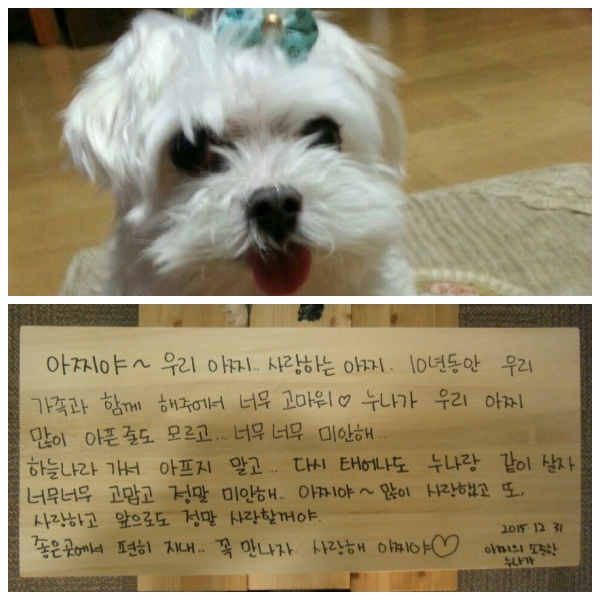 아찌야~ 우리 아찌.. 사랑하는 아찌. 10년동안 우리
가족과 함께 해주에서 너무 고마워♡ 누나가 우리 아찌
많이 아픈줄도 모르고.. 너무너무 미안해..
하늘나라 가서 아프지 말고... 다시 태어나도 누나랑 같이 살자
너무너무 고맙고 정말 미안해.. 아찌야~ 많이 사랑했고 또,
사랑하고 앞으로도 정말 사랑할꺼야.
좋은곳에서 편히 지내.. 꼭 만나자. 사랑해 아찌야♡
2015. 12. 31
아찌의 소중한
누나가